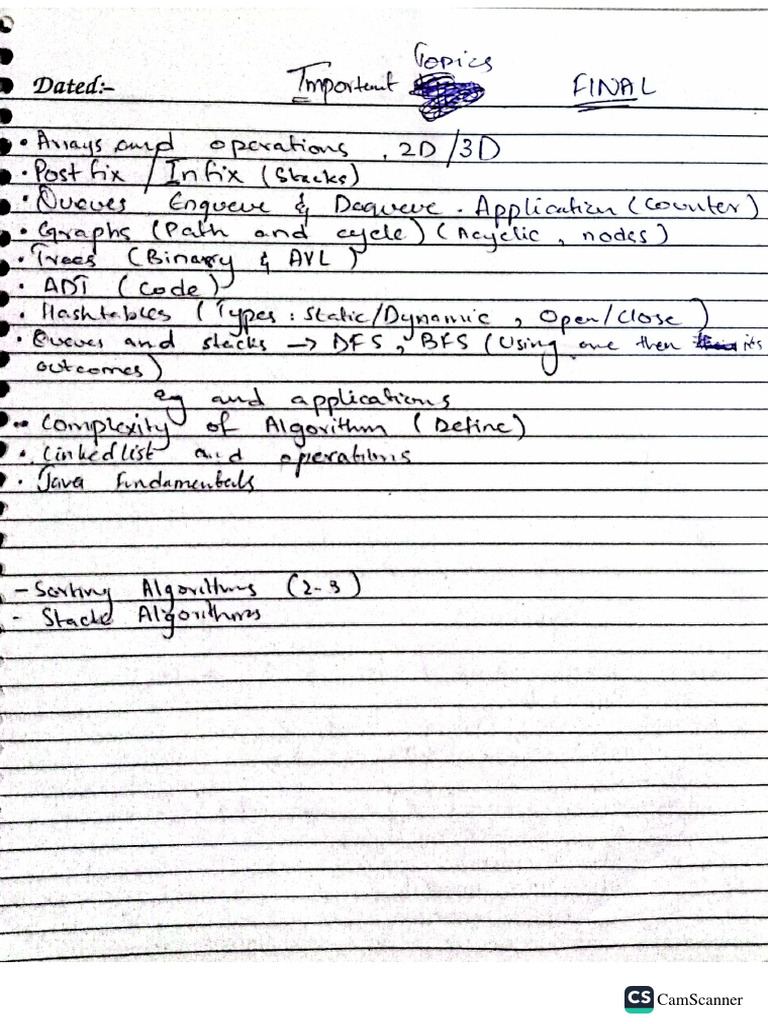 Topics
Dated:- Important FINAL
• Arrays and operations , 2D/3D
• Post fix / Infix (Stacks)
• Queues Enqueue & Dequeue . Application (Counter)
• Graphs (Path and cycle) (Acyclic, nodes)
• Trees (Binary & AVL)
• ADT (Code)
• Hashtables (Types: Static/Dynamic, Open/Close)
• Queues and stacks → DFS, BFS (Using one then its
outcomes)
eg and applications
• Complexity of Algorithm (Define)
• Linked list and operations
• Java Fundamentals
- Sorting Algorithms (2-3)
- Stack Algorithms
CS CamScanner